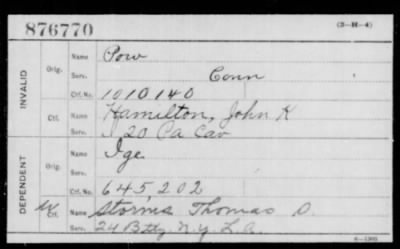 876770 (3-H-4)
INVALID
Orig. Name Pow
Serv. Conn
Ctf. No. 1010140
Ctf. Name Hamilton, John K
Serv. 20 Pa Cav
DEPENDENT
Orig. Name Ige
Serv.
Ctf. No. 645202
Ctf. Name Storms Thomas D.
Serv. 24 Btty. N.Y. L.A.